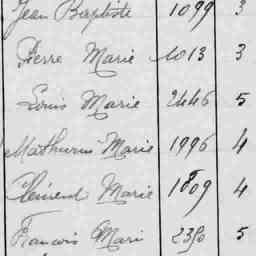 Jean Baptiste 1099 3
Pierre Marie 1013 3
Louis Marie 2446 5
Mathurin Marie 1996 4
Clément Marie 1809 4
Francois Mari 2390 5